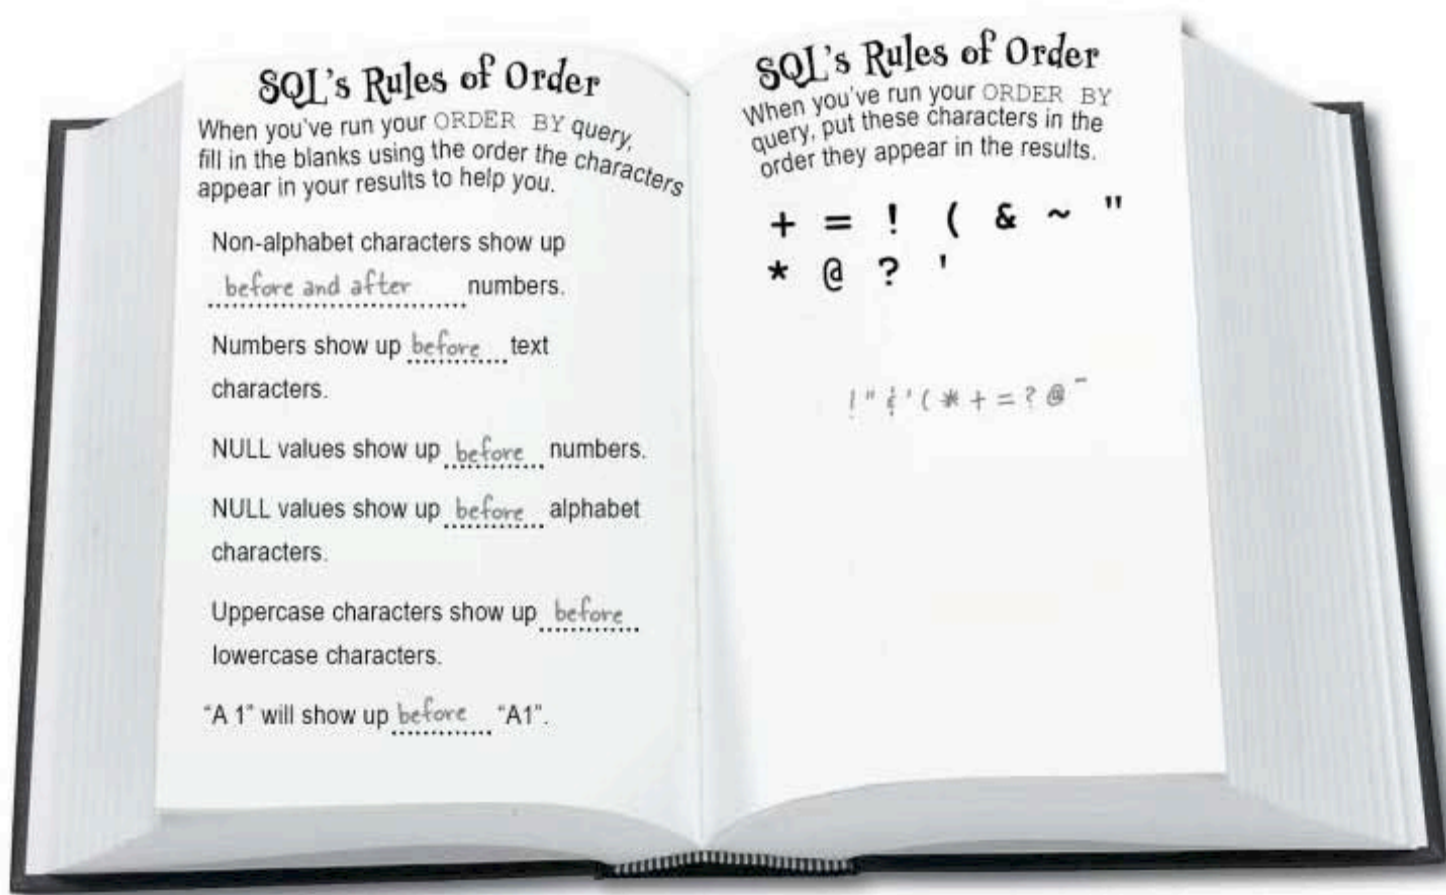 SQL's Rules of Order
When you've run your ORDER BY query,
fill in the blanks using the order the characters
appear in your results to help you.
Non-alphabet characters show up
before and after numbers.
Numbers show up before text
characters.
NULL values show up before numbers.
NULL values show up before alphabet
characters.
Uppercase characters show up before
lowercase characters.
“A 1” will show up before “A1”.
SQL's Rules of Order
When you've run your ORDER BY
query, put these characters in the
order they appear in the results.
+ = ! ( & ~ "
* @ ? '
! " & ' ( * + = ? @ ~